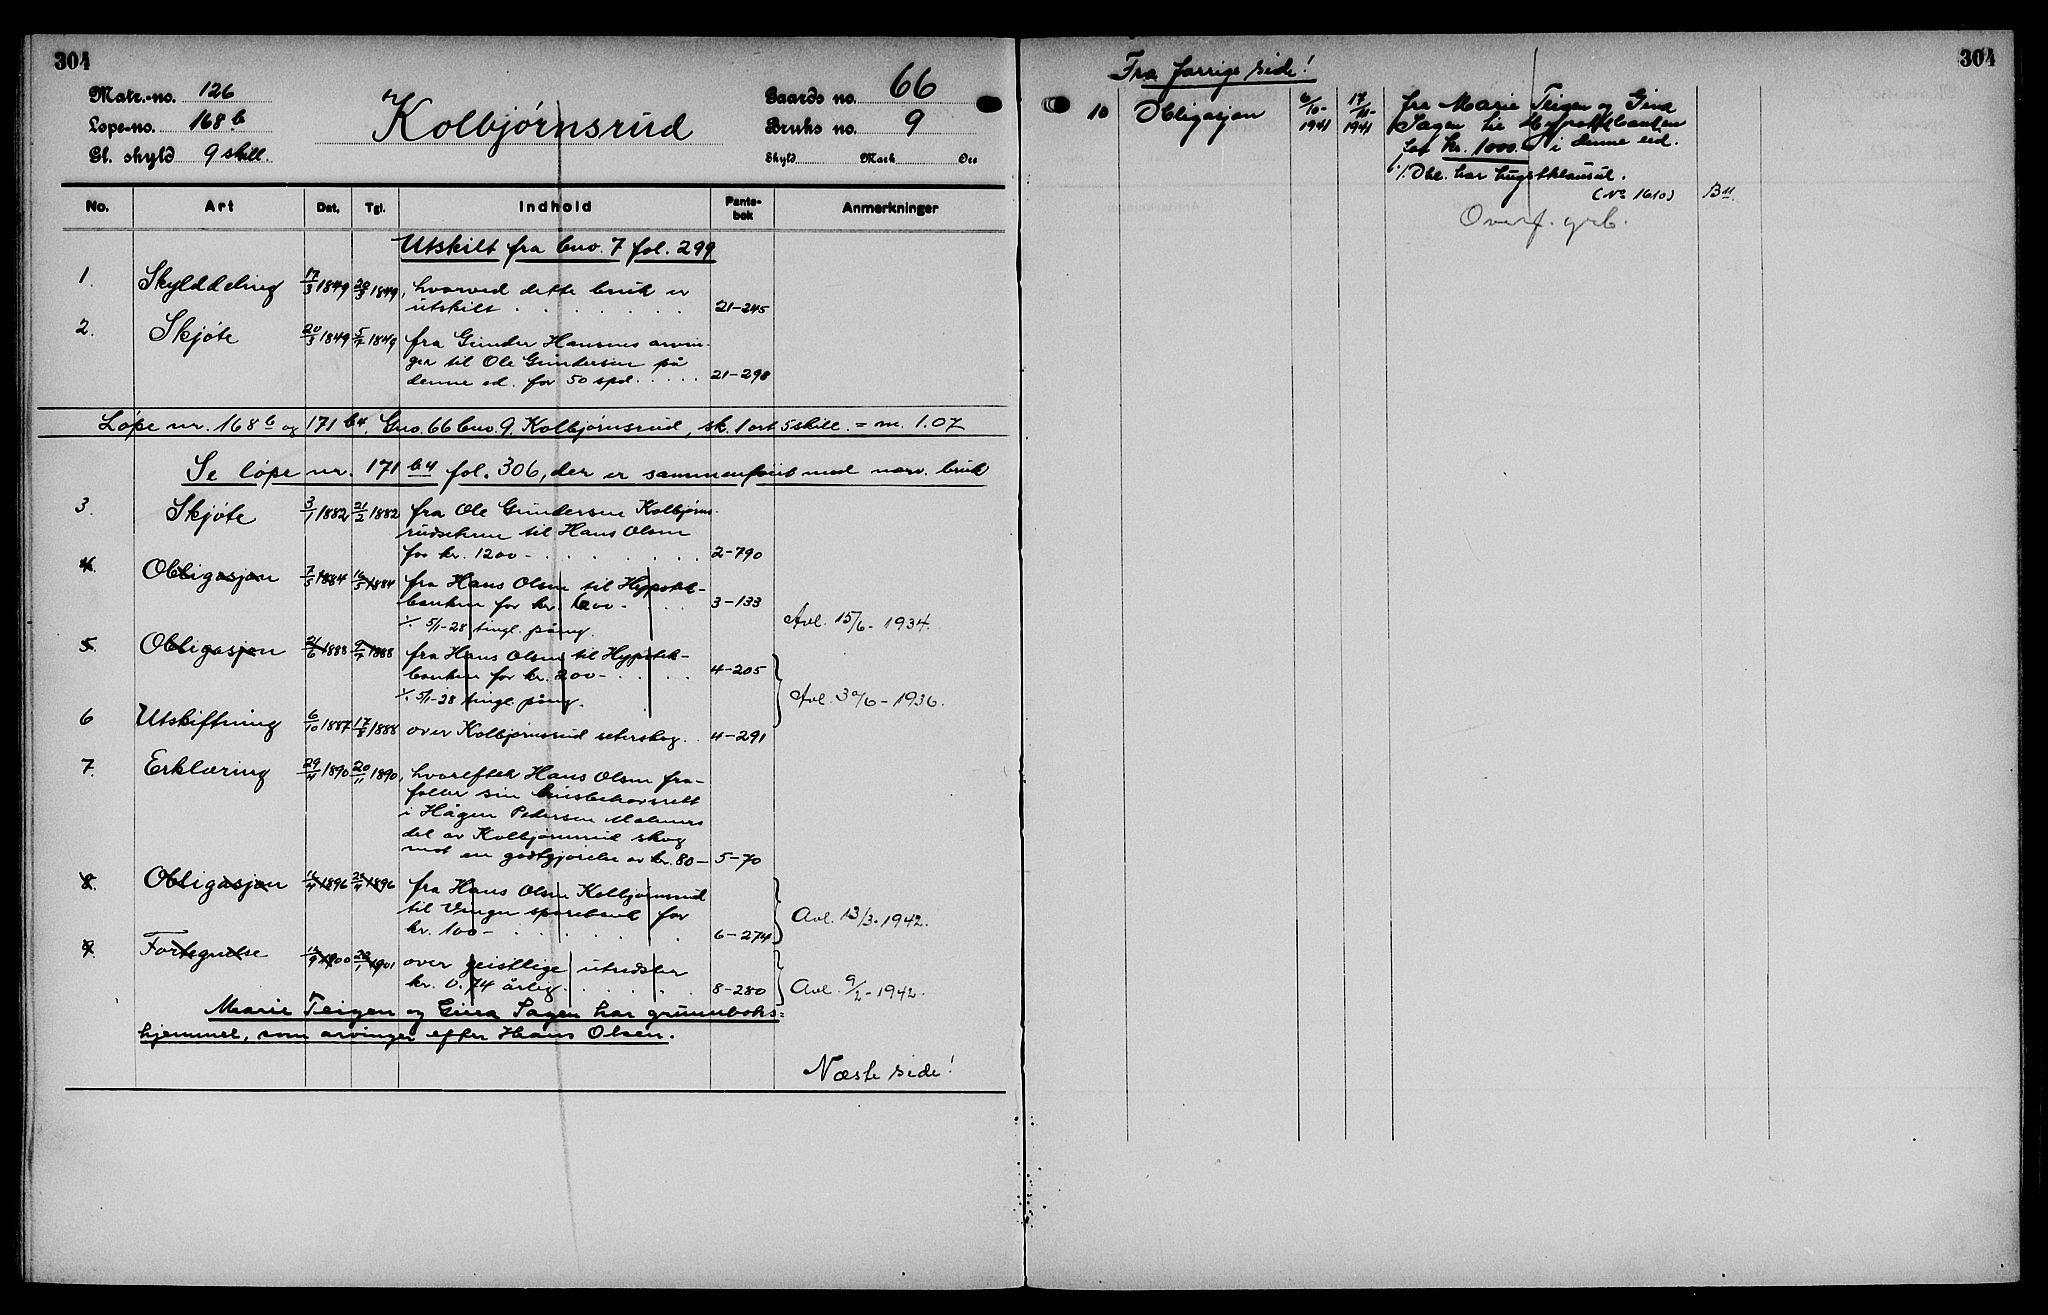 304
Matr.-no. 126
Løpe-no. 168 b
Gl. skyld 9 skill.
Kolbjørnsrud
Gaards no. 66
Bruks no. 9
Skyld Mark Øre
No. Art Dat. Tgl. Indhold Pante-bok Anmerkninger
Utskilt fra bno. 7 fol. 299
1. Skylddeling 17/3 1849 20/3 1849, hvorved dette bruk er
utskilt . . . . . . . 21-245
2. Skjøte 20/3 1849 5/7 1849 fra Gunder Hansens arvin-
ger til Ole Gundersen på
denne ed. for 50 spd. . . . . 21-298
Løpe nr. 168 b og 171 b4, Gno. 66 bno. 9. Kolbjørnsrud, sk. 1 ort 5 skill. = m. 1.07
Se løpe nr. 171 b4 fol. 306, der er sammenføiet med nærv. bruk
3. Skjøte 3/1 1882 21/2 1882 fra Ole Gundersen Kolbjørns-
rudsehren til Hans Olsen
for kr. 1200 - . . . . . . 2-790
4. Obligasjon 7/5 1884 16/5 1884 fra Hans Olsen til Hypotek-
banken for kr. 600 - . . 3-133
./. 5/1-28 tingl. påmg. Avl. 15/6 - 1934.
5. Obligasjon 21/6 1888 9/7 1888 fra Hans Olsen til Hypotek-
banken for kr. 800 - . . . . . 4-205
./. 5/1-28 tingl. påmg. Avl. 30/6 - 1936.
6 Utskiftning 6/10 1887 17/8 1888 over Kolbjørnsrud seterskog. . 4-291
7. Erklæring 29/4 1890 20/11 1890, hvorefter Hans Olsen fra-
faller sin husbehovsrett
i Hågen Pedersen
del av Kolbjørnsrud skog
mot en godtgjørelse av kr. 80 - 5-70
8. Obligasjon 16/4 1896 20/4 1896 fra Hans Olsen Kolbjørnsrud
til Vinger sparebank for
kr. 100 - . . . . . . 6-274 Avl. 13/3 - 1942.
9. Fortegnelse 12/9 1900 28/1 1901 over geistlige utredsler
kr. 0.74 årlig. . . . . 8-280 Avl. 9/2 - 1942.
Marie Teigen og Gina Sagen har grunnboks=
hjemmel, som arvinger efter Hans Olsen.
Næste side!
304
Fra forrige side!
10 Obligasjon 6/10- 1941 17/10- 1941 fra Marie Teigen og Gina
Sagen til Hypotekbanken
for kr. 1000.- i denne eid.
./. Obl. har hugstklausul.
(No 1610) B 11.
Overf. grb.